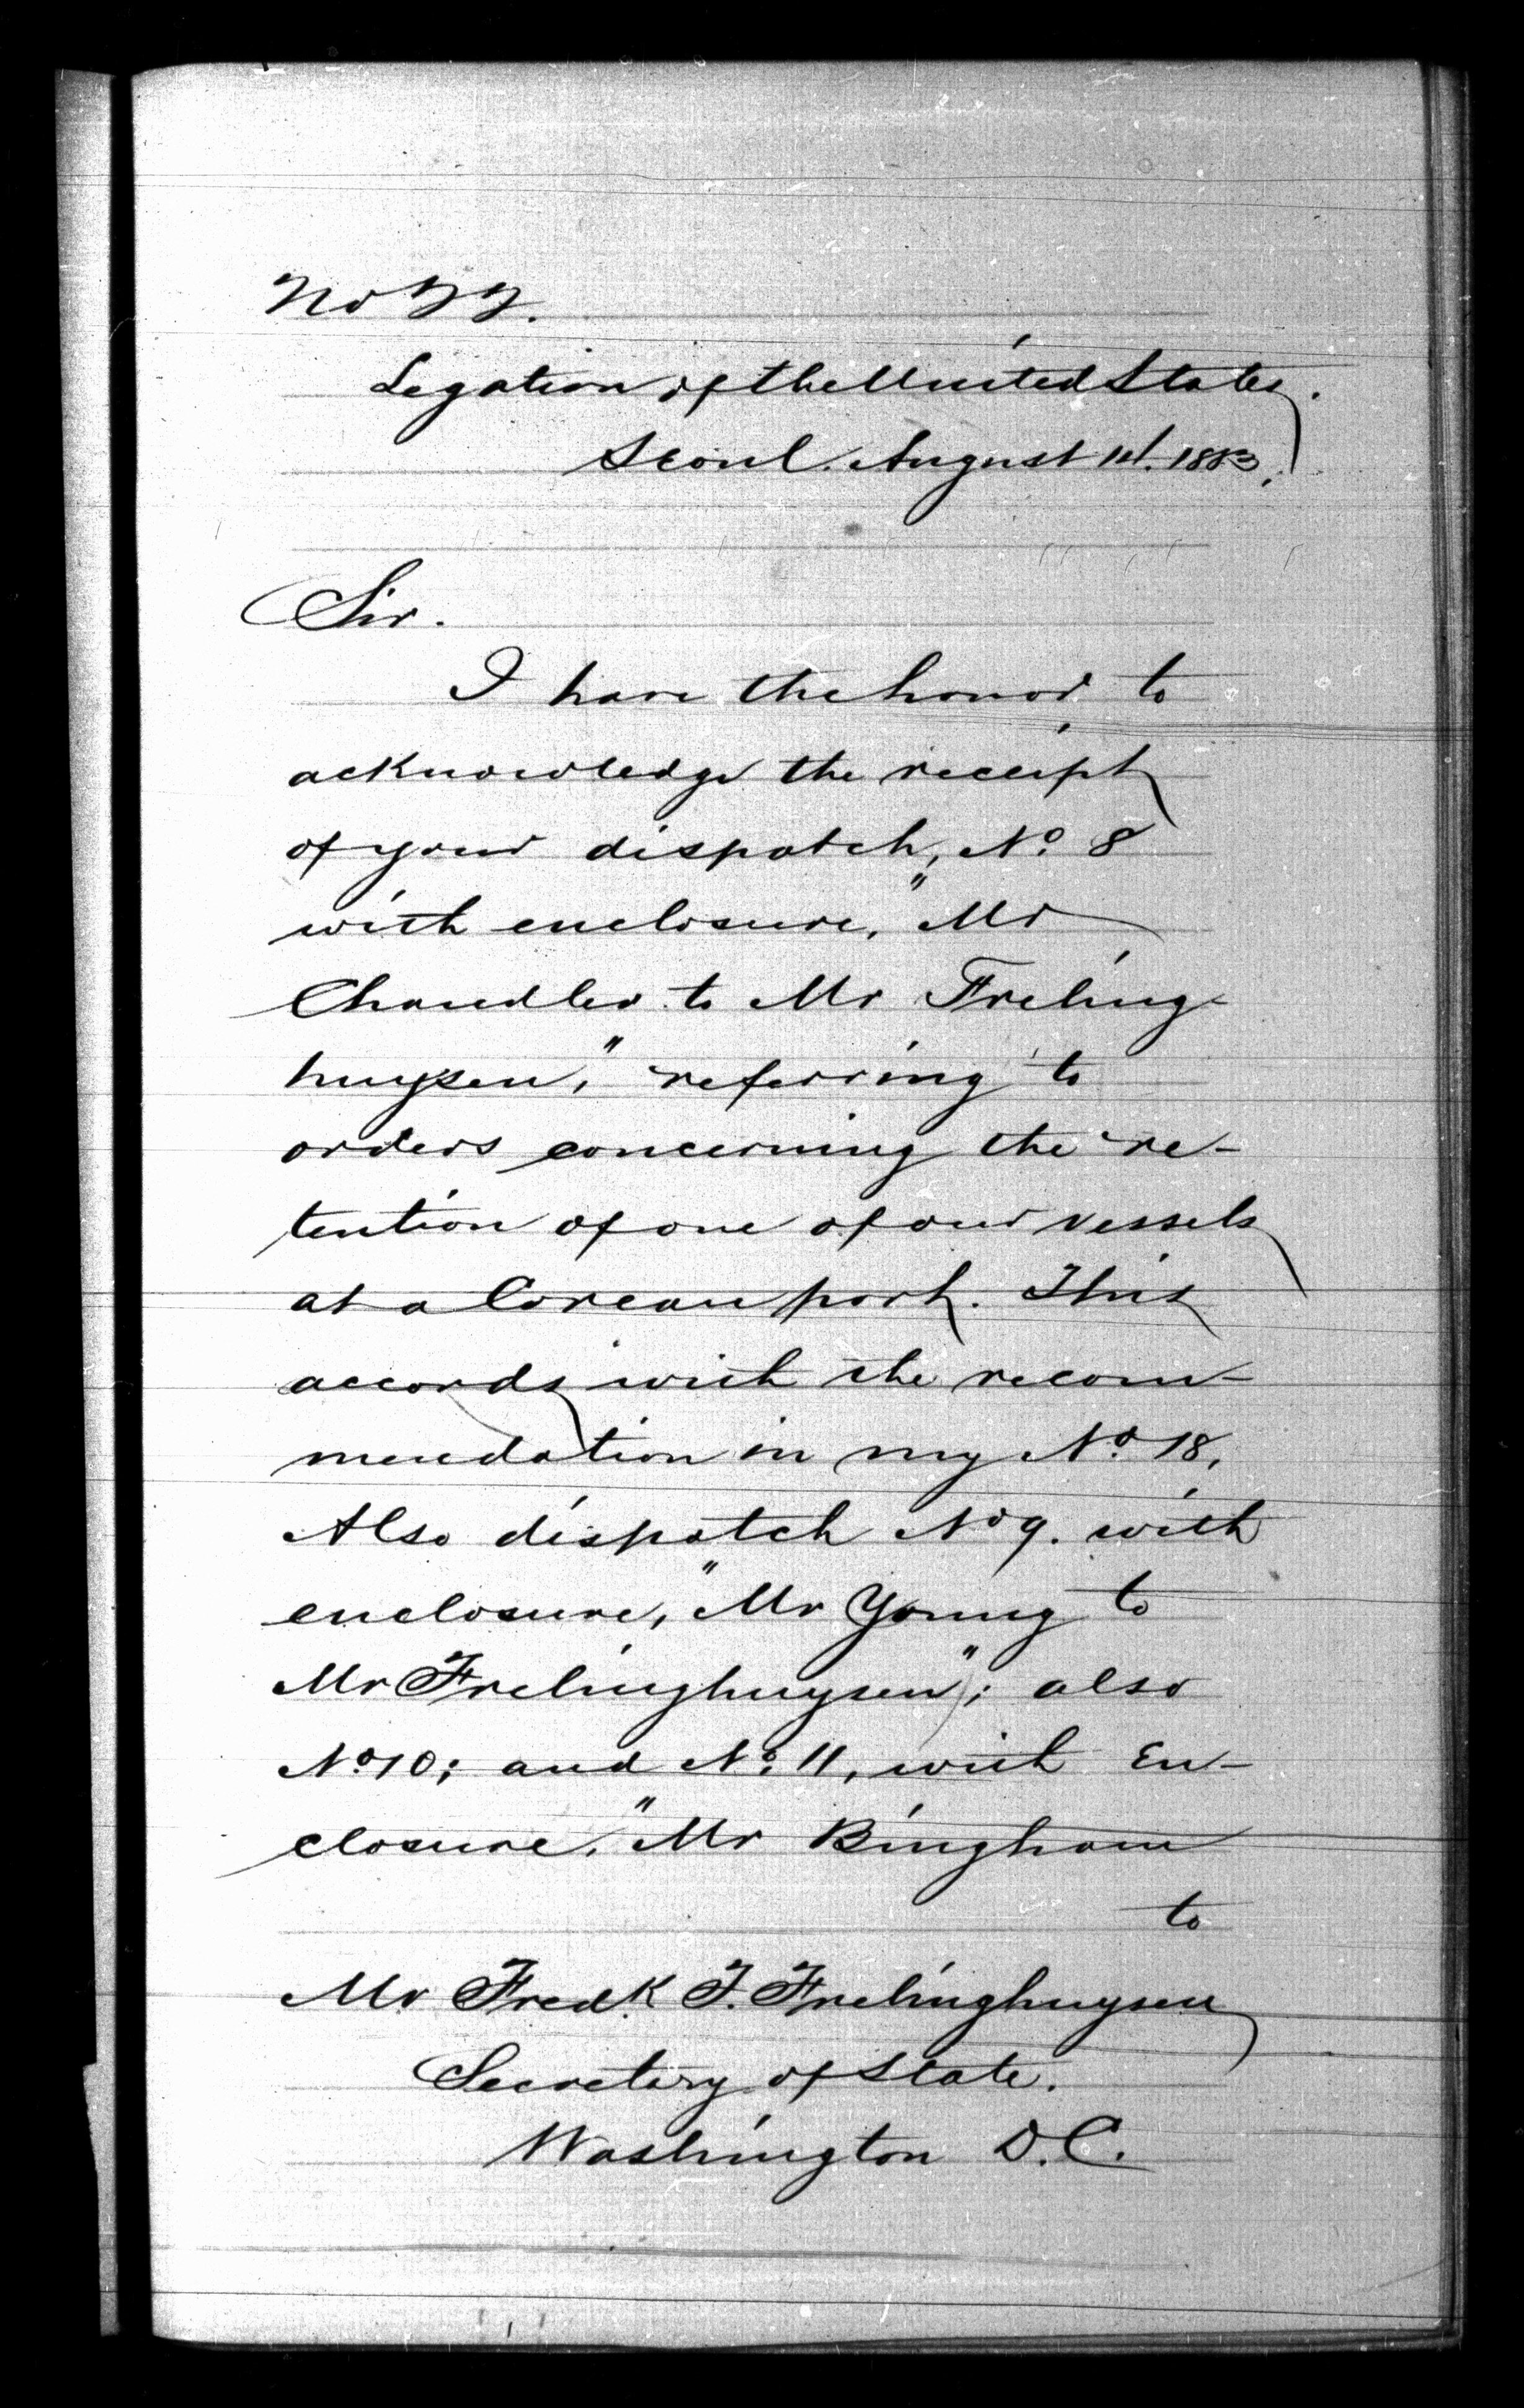 No 22.
Legation of the United States.
Seoul. August 1st. 1883.
Sir.
I have the honor to
acknowledge the receipt
of your dispatch, No. 8
with enclosure, "Mr
Chandler to Mr Freling-
huysen," referring to
orders concerning the re-
tention of one of our vessels
at a Corean port. This
accords with the recom-
mendation in my No. 18,
Also dispatch No 9. with
enclosure, "Mr Young to
Mr Frelinghuysen"; also
No 10; and No. 11, with En-
closure, "Mr Bingham
to
Mr Fredk F. Frelinghuysen
Secretary of State.
Washington D.C.